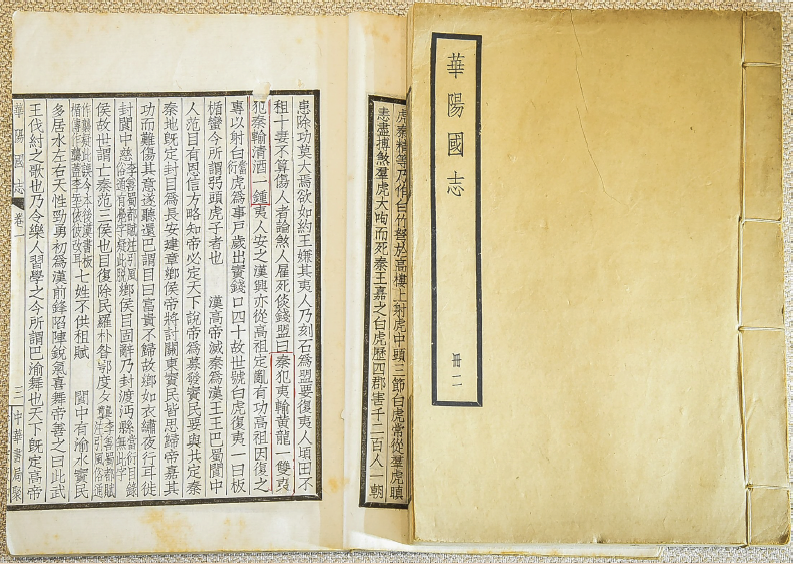 華陽國志
冊二
虎秦精等乃作白竹弩於高樓上射虎中頭三節白虎常從羣虎瞋
恚盡搏煞羣虎大呴而死秦王嘉之曰虎歷四郡害千二百人一朝
患除功莫大焉欲如約王嫌其夷人乃刻石爲盟要復夷人頃田不
租十妻不算傷人者論煞人雇死倓錢盟曰秦犯夷輸黃龍一雙夷
犯秦輸清酒一鍾夷人安之漢興亦從高祖定亂有功高祖因復之
專以射白當衍虎爲事戶歲出賨錢口四十故世號白虎復夷一曰板
楯蠻今所謂弜頭虎子者也　漢高帝滅秦爲漢王王巴蜀閬中
人范目有恩信方略知帝必定天下說帝爲募發賨民要與共定秦
秦地既定封目爲長安建章鄉侯帝將討關東賨民皆思歸帝嘉其
功而難傷其意遂聽還巴謂目曰富貴不歸故鄉如衣繡夜行耳徙
封閬中慈李善蜀都賦注引風俗通有字疑此脫鄉侯目固辭乃封渡沔縣當衍目錄無此字
侯故世謂亡秦范三侯也目復除民羅朴昝鄂度夕龔李善蜀都賦注引風俗通
作襲疑此誤今本後漢書板楯傳作龔蓋李依彼改耳七姓不供租賦　閬中有渝水賨民
多居水左右天性勁勇初爲漢前鋒陷陣銳氣喜舞帝善之曰此武
王伐紂之歌也乃令樂人習學之今所謂巴渝舞也天下既定高帝
華陽國志　卷一　三　中華書局聚